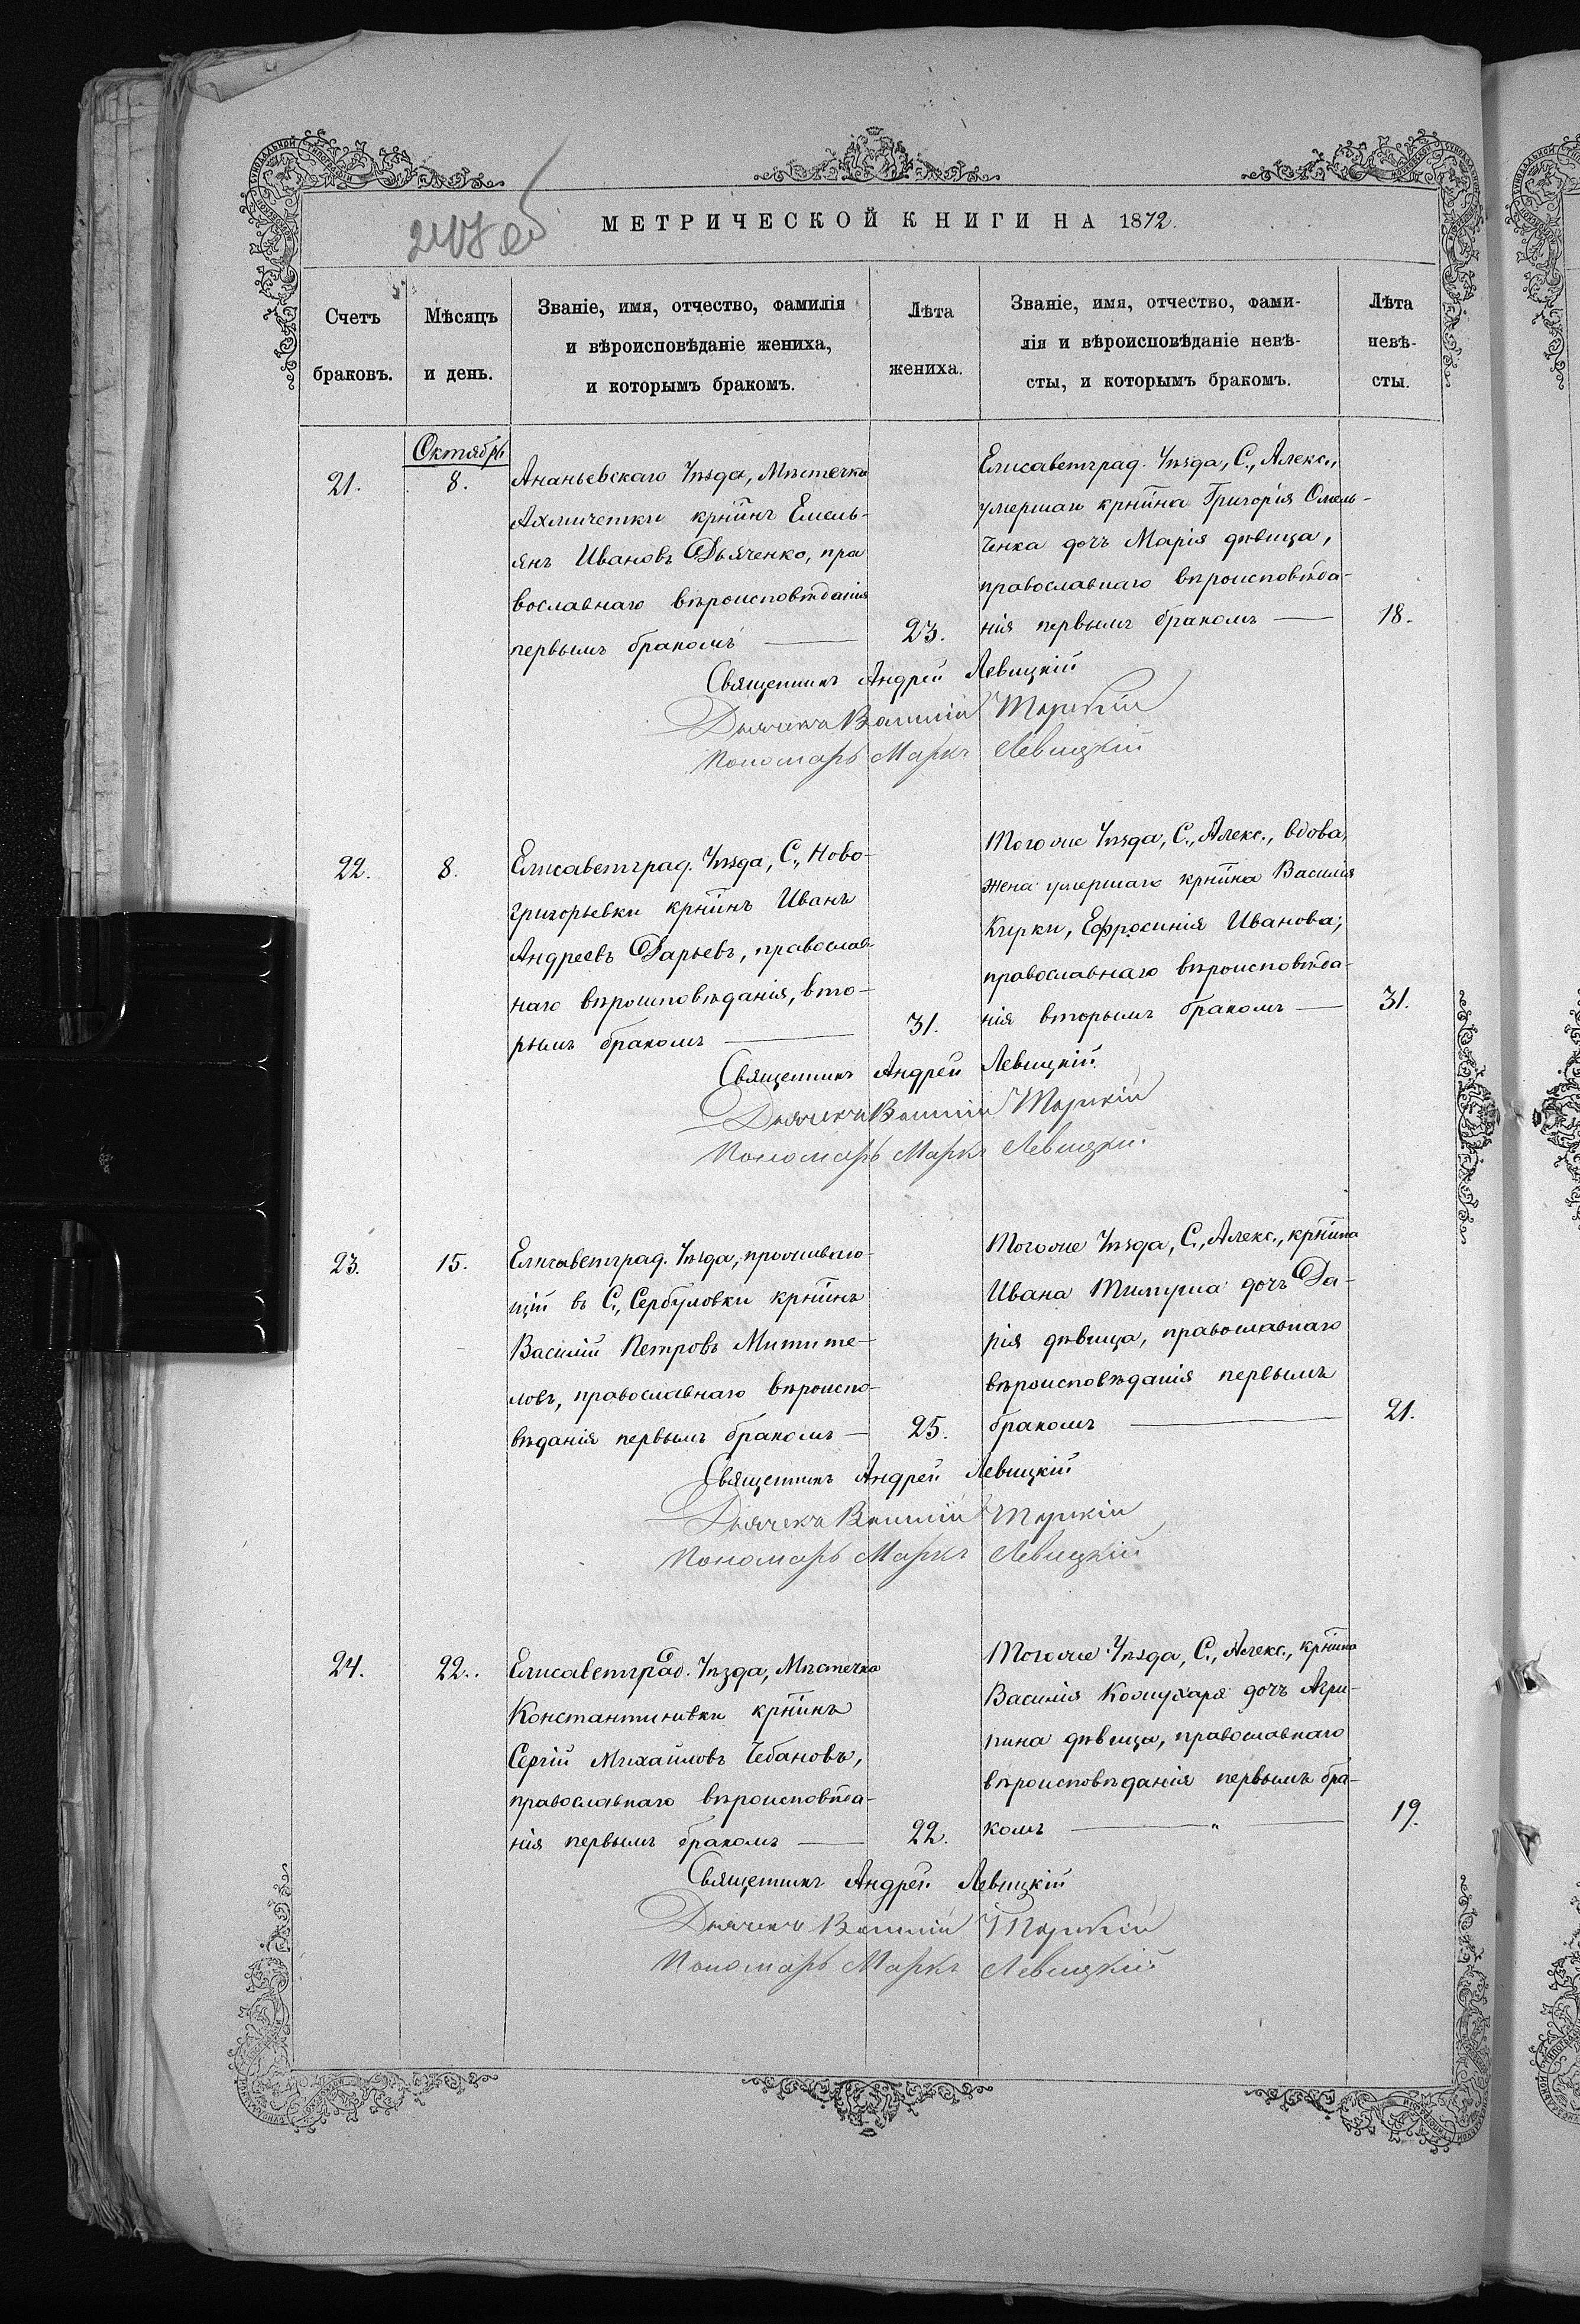 МЕТРИЧЕСКОЙ КНИГИ НА 1872.
Счетъ браковъ.
Мѣсяцъ и день.
Званіе, имя, отчество, фамилія
и вѣроисповѣданіе жениха,
и которымъ бракомъ.
Лѣта жениха.
Званіе, имя, отчество, фами-
лія и вѣроисповѣданіе невѣ-
сты, и которымъ бракомъ.
Лѣта невѣ-
сты.
Октябрь
21.
8.
Ананьевскаго Уѣзда, Мѣстечка
Ахмичетки крⷭ҇тiинъ Емель-
янъ Ивановъ Дьяченко, пра
вославнаго вѣроисповѣданія
первымъ бракомъ —
23.
Елисаветград. Уѣзда, С., Алекс.,
умершаго крнина Григорія Омель-
ченка дочъ Марія дѣвица,
православнаго вѣроисповѣда-
нія первымъ бракомъ —
18.
Священникъ Андрей Левицкій
Дьячекъ
Пономарь Маркъ Левицкій
22.
8.
Елисаветград. Уѣзда, С., Ново-
григорьевки крнинъ Иванъ
Андреевъ Дарьевъ, православ-
наго вѣроисповѣданія, вто-
рымъ бракомъ —
31.
Тогоже Уѣзда, С., Алекс., вдова,
жена умершаго крнина Василія
Кирки, Ефросинія Иванова;
православнаго вѣроисповѣда-
нія вторымъ бракомъ —
31.
Священникъ Андрей Левицкій
Дьячекъ
Пономарь Маркъ Левицкій
23.
15.
Елисаветград. Уѣзда, проживаю-
щій въ С., Сербуловки крнинъ
Василій Петровъ Митите-
ловъ, православнаго вѣроиспо-
вѣданія первымъ бракомъ —
25.
Тогоже Уѣзда, С., Алекс., крнина
Ивана дочъ Да-
рія дѣвица, православнаго
вѣроисповѣданія первымъ
бракомъ —
21.
Священникъ Андрей Левицкій
Дьячекъ
Пономарь Маркъ Левицкій
24.
22.
Елисаветград. Уѣзда, Мѣстечка
Константиновки крнинъ
Сергій Михайловъ Чебановъ,
православнаго вѣроисповѣда-
нія первымъ бракомъ —
22.
Тогоже Уѣзда, С., Алекс., крнина
Василія Кожухаря дочъ Агри-
пина дѣвица, православнаго
вѣроисповѣданія первымъ бра-
комъ — " —
19.
Священникъ Андрей Левицкій
Дьячекъ
Пономарь Маркъ Левицкій